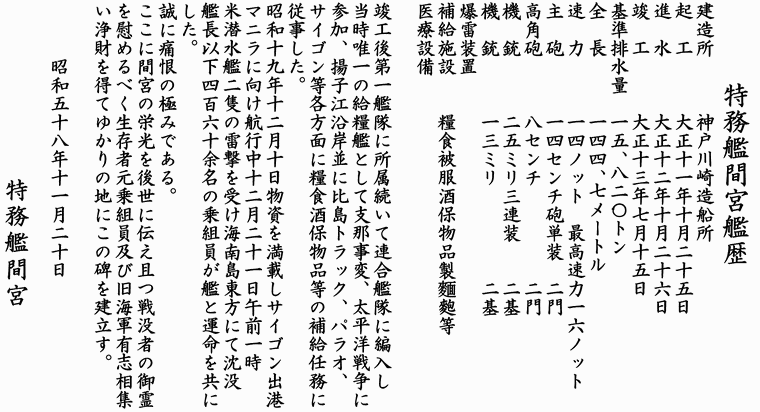 特務艦間宮艦歴
建造所　神戸川崎造船所
起工　大正十一年十月二十五日
進水　大正十二年十月二十六日
竣工　大正十三年七月十五日
基準排水量　一五、八二〇トン
全長　一四四、七メートル
速力　一四ノット　最高速力一六ノット
主砲　一四センチ砲単装　二門
高角砲　八センチ　二門
機銃　二五ミリ三連装　二基
機銃　一三ミリ　二基
爆雷装置
補給施設　糧食被服酒保物品製麺麭等
医療設備
竣工後第一艦隊に所属続いて連合艦隊に編入し
当時唯一の給糧艦として支那事変、太平洋戦争に
参加、揚子江沿岸並に比島トラック、パラオ、
サイゴン等各方面に糧食酒保物品等の補給任務に
従事した。
昭和十九年十二月十日物資を満載しサイゴン出港
マニラに向け航行中十二月二十一日午前一時
米潜水艦二隻の雷撃を受け海南島東方にて沈没
艦長以下四百六十余名の乗組員が艦と運命を共に
した。
誠に痛恨の極みである。
ここに間宮の栄光を後世に伝え且つ戦没者の御霊
を慰めるべく生存者元乗組員及び旧海軍有志相集
い浄財を得てゆかりの地にこの碑を建立す。
昭和五十八年十一月二十日
特務艦間宮